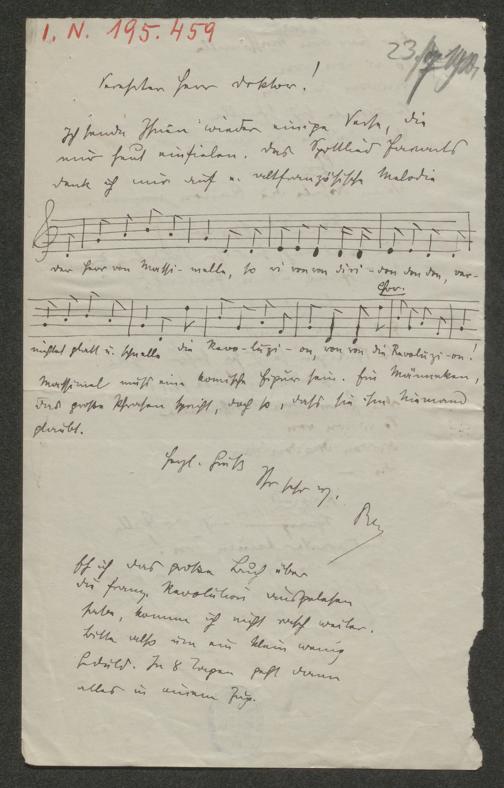 I. N. 195.459
23/7 190
Verehrter Herr Doktor!
Ich sende Ihnen wieder einige Verse, die
mir heut einfielen. Das Spottlied Favarts
denk ich mir auf e. altfranzösische Melodie
der Herr von Massi-melle, so vi von von divi-don don don, ver-
Chor.
nichtet glatt u. schnelle die Revo-luzi-on, von von die Revoluzi-on!
Massimel muß eine komische Figur sein. Ein Männeken,
das große Phrasen spricht, doch so, daß sie ihm Niemand
glaubt.
Herzl. Gruß
Ihr sehr erg.
Eh ich das große Buch über
die franz. Revolution ausgelesen
habe, komme ich nicht rasch weiter.
Bitte also um ein klein wenig
Geduld. In 8 Tagen geht dann
alles in einem Zug.